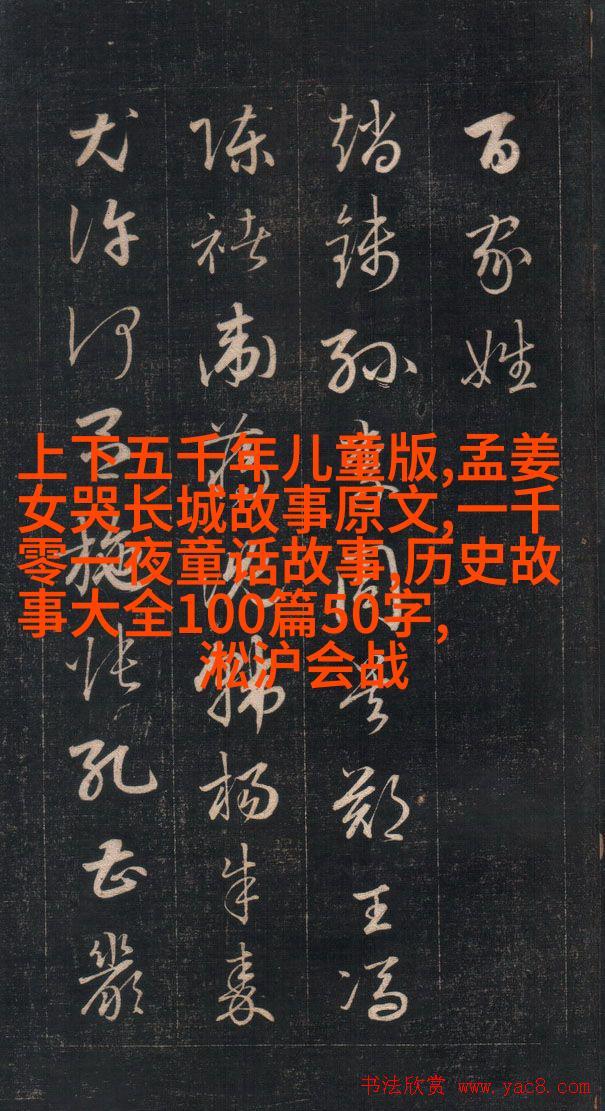 百家姓
趙錢孫李周吳鄭王馮
陳褚衛蔣沈韓楊朱秦
尤許何呂施張孔曹嚴
上下五千年儿童版,孟姜
女哭长城故事原文,一千
零一夜童话故事,历史故
事大全100篇50字,
淞沪会战
书法欣赏 www.yac8.com